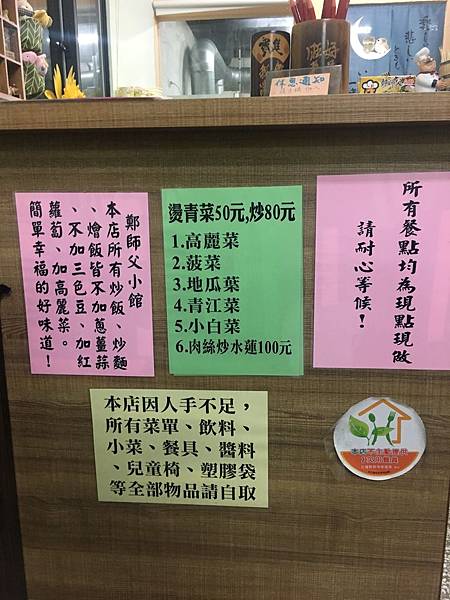 休息通知
鄭師父小館
本店所有炒飯、炒麵
、燴飯皆不加蔥薑蒜
、不加三色豆、加紅
蘿蔔、加高麗菜。
簡單幸福的好味道！
燙青菜50元,炒80元
1.高麗菜
2.菠菜
3.地瓜葉
4.青江菜
5.小白菜
6.肉絲炒水蓮100元
所有餐點均為現點現做
請耐心等候！
本店因人手不足，
所有菜單、飲料、
小菜、餐具、醬料
、兒童椅、塑膠袋
等全部物品請自取
本店不主動提供